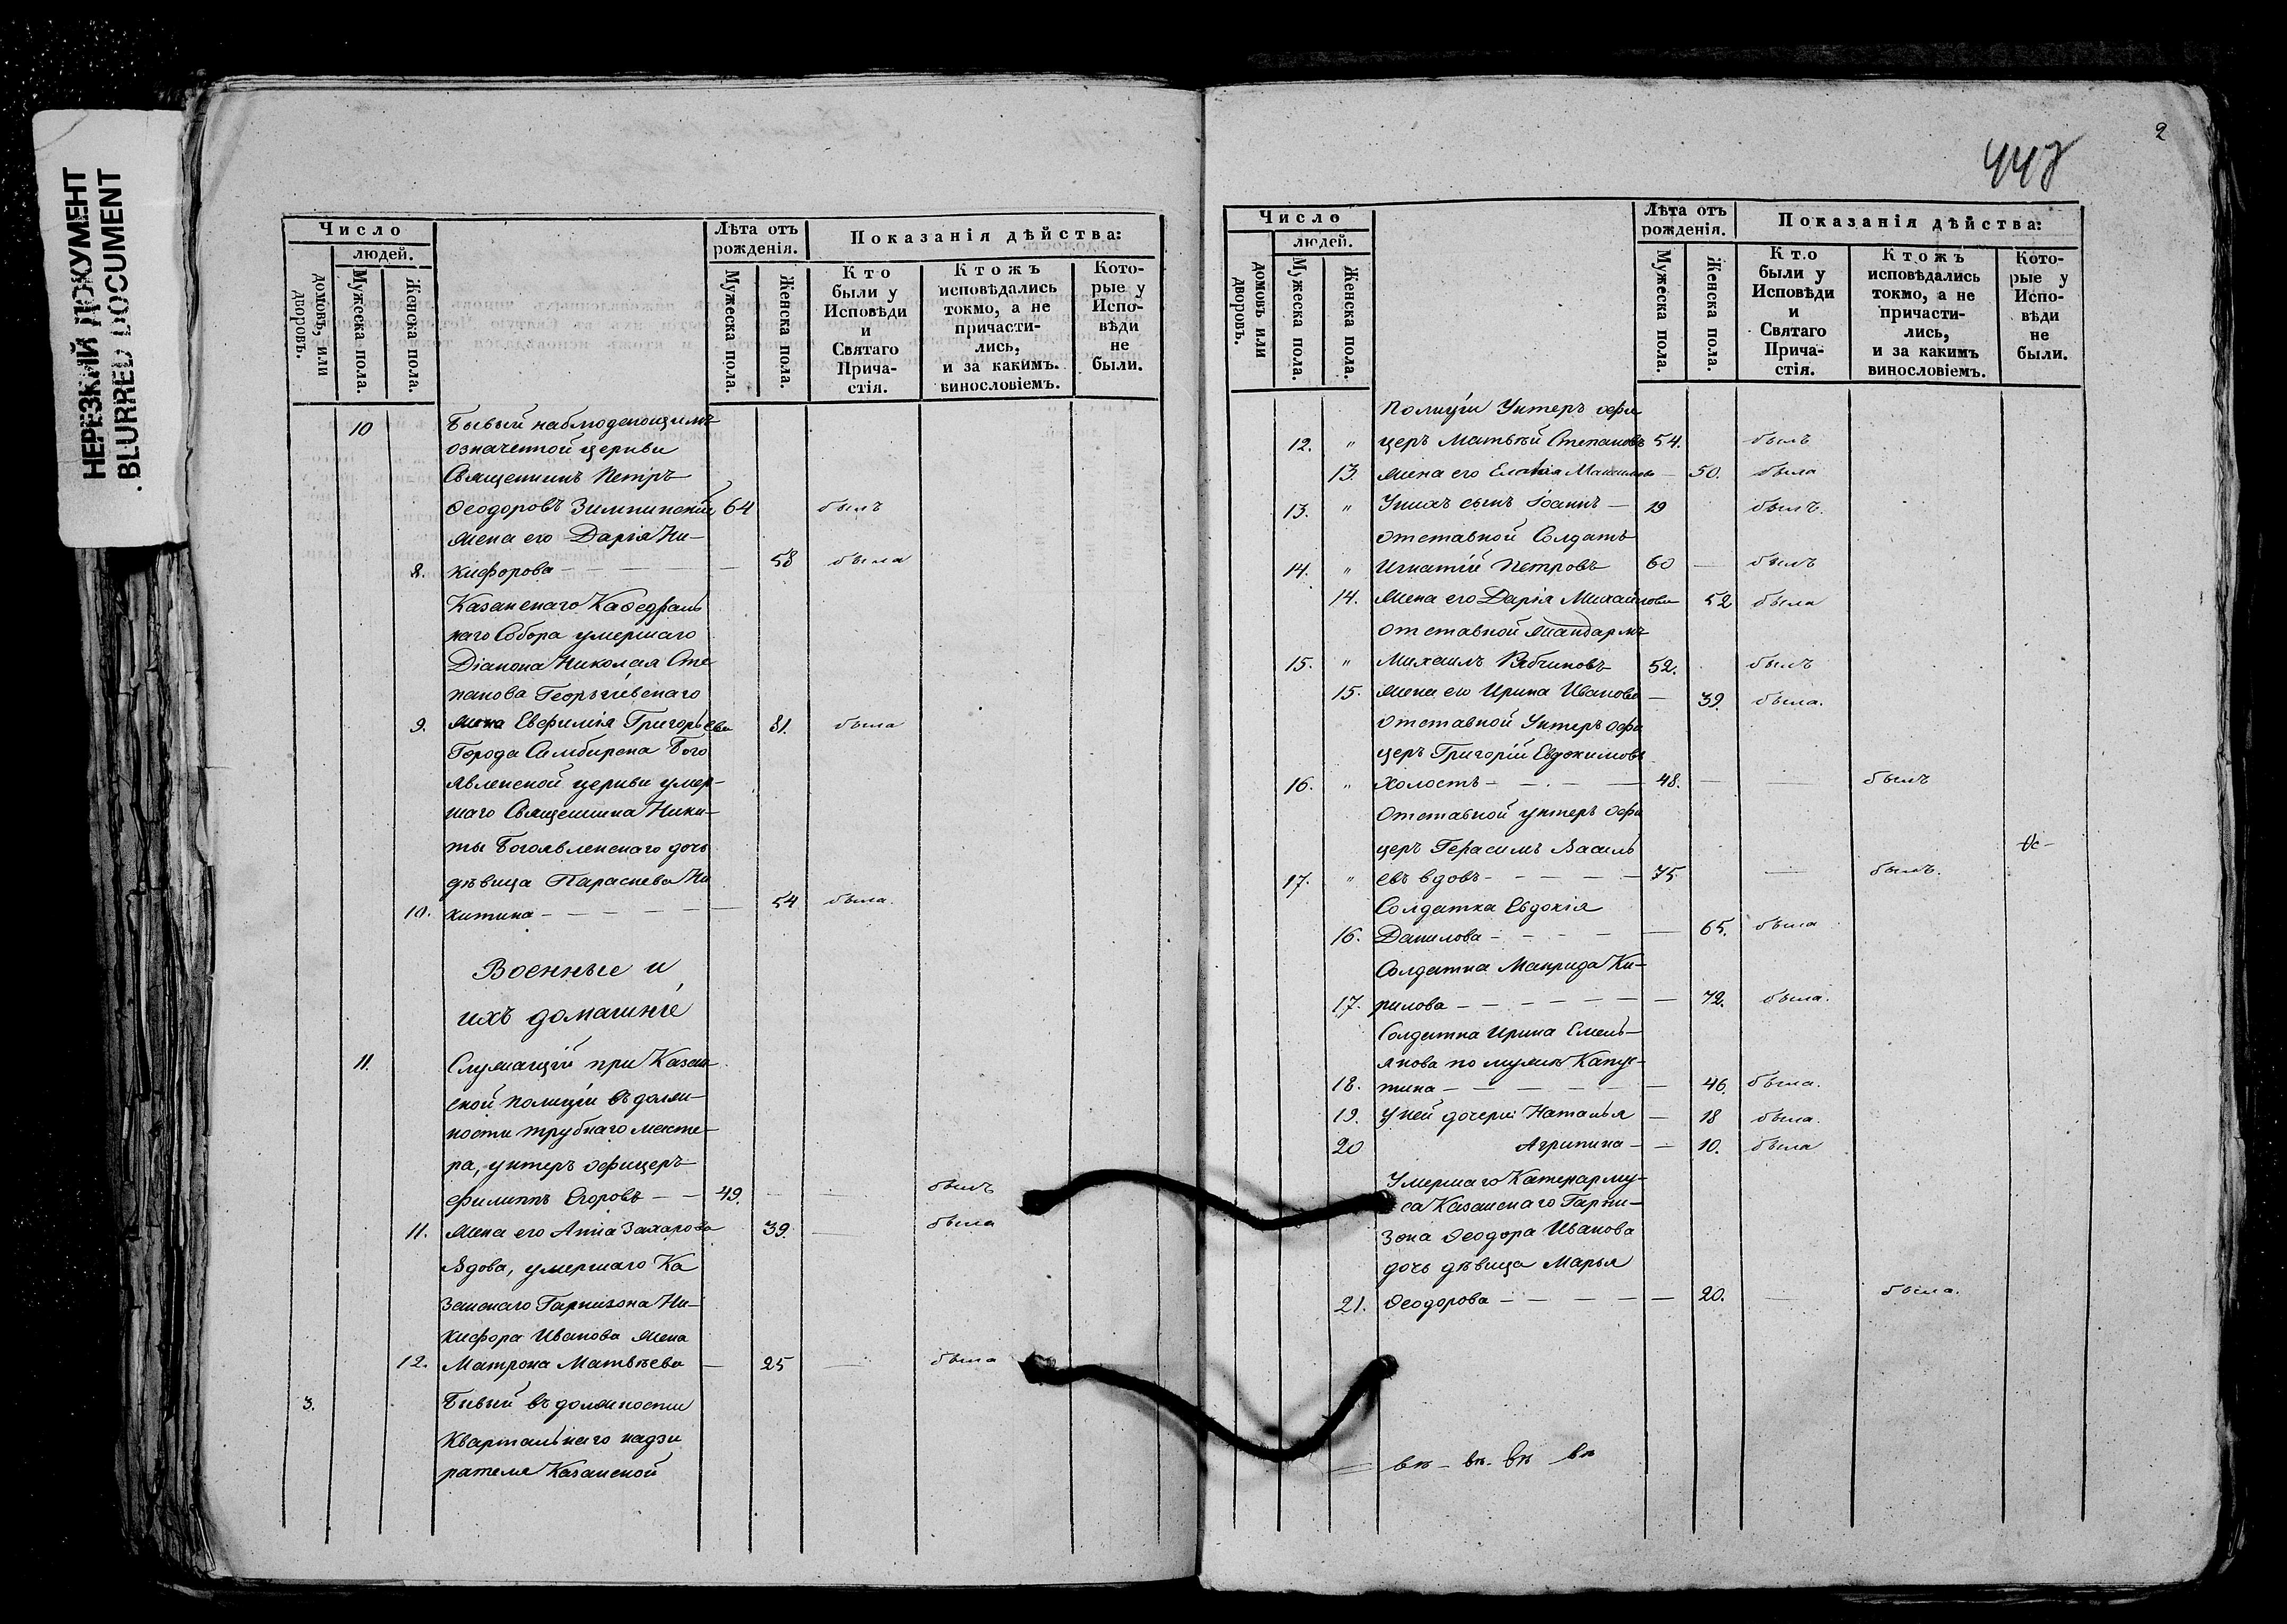 НЕРЕЗКИЙ ДОКУМЕНТ
BLURRED DOCUMENT
Число
людей.
домовъ, или дворовъ.
Мужеска пола.
Женска пола.
Лѣта отъ рожденія.
Мужеска пола.
Женска пола.
Показанія дѣйства:
Кто были у Исповѣди и Святаго Прича-стія.
Ктожъ исповѣдались токмо, а не причасти-лись, и за какимъ. винословіемъ.
Кото-рые у Испо-вѣди не были.
10 Бывый наблюдающимъ
означенной церкви
Священникъ Петръ
Ѳеодоровъ 64 былъ
Жена его Дарія Ни-
8. кифорова — 58 была
Казанскаго Каѳедраль
наго Собора умершаго
Діакона Николая Сте
панова Георгіевскаго
9. жена Евфимія Григорьева 81. была
Города Симбирска Бого
явленской церкви умер-
шаго Священника Ники-
ты Богоявленскаго дочь
дѣвица Параскева Ни
10. китина — 54 была.
Военные и
ихъ домашніе
11. Служащій при Казан
ской полиціи въ долж-
ности трубнаго мосте-
ра, унтеръ офицеръ
Филиппъ Егоровъ — 49. — былъ
11. Жена его Анна Захарова 39. — была
Вдова, умершаго Ка
занскаго Гарнизона Ни-
кифора Иванова жена
12. Матрона Матвѣева — 25 — была
3. Бывый въ должности
Квартальнаго надзи
рателя Казанской
2
447
Число
людей.
домовъ или дворовъ.
Мужеска пола.
Женска пола.
Лѣта отъ рожденія.
Мужеска пола.
Женска пола.
Показанія дѣйства:
Кто были у Исповѣди и Святаго Прича-стія.
Ктожъ исповѣдались токмо, а не причасти-лись, и за какимъ винословіемъ.
Кото-рые у Испо-вѣди не были.
Полиціи Унтеръ офи
12. " церъ Матвѣй Степановъ 54. былъ
13. Жена его Максимова — 50. была
13. " У нихъ сынъ Іоаннъ — 19 былъ.
Отставной Солдатъ
14. " Игнатій Петровъ 60 — былъ
14. Жена его Дарія Михайлова 52 была
Отставной жандармъ
15. " Михаилъ Рябчиковъ 52. былъ
15. Жена его Ирина Иванова — 39. была.
Отставной Унтеръ офи
церъ Григорій Евдокимовъ
16. " холостъ — 48. — — былъ
Отставной унтеръ офи
церъ Герасимъ Василь
17. " евъ вдовъ — 75 — былъ.
Солдатка Евдокія
16. Данилова — 65. была
Солдатка Макрида Ки-
17. рилова — 72. была.
Солдатка Ирина Емель-
янова по мужѣ Капус-
18. тина — 46. была.
19. У ней дочери Наталья — 18 была.
20 Агрипина — 10. была
Умершаго Каптенарму-
са Казанскаго Гарни-
зона Ѳеодора Иванова
дочь дѣвица Марья
21. Ѳеодорова — 20. — была.